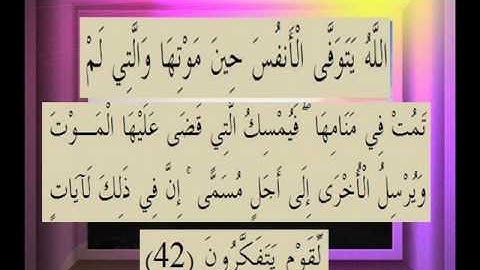 اللَّهُ يَتَوَفَّى الْأَنفُسَ حِينَ مَوْتِهَا وَالَّتِي لَمْ
تَمُتْ فِي مَنَامِهَا ۖ فَيُمْسِكُ الَّتِي قَضَى عَلَيْهَا الْمَــوْتَ
وَيُرْسِلُ الْأُخْرَى إِلَى أَجَلٍ مُسَمًّى ۚ إِنَّ فِي ذَلِكَ لَآيَاتٍ
لِّقَوْمٍ يَتَفَكَّرُونَ (42)